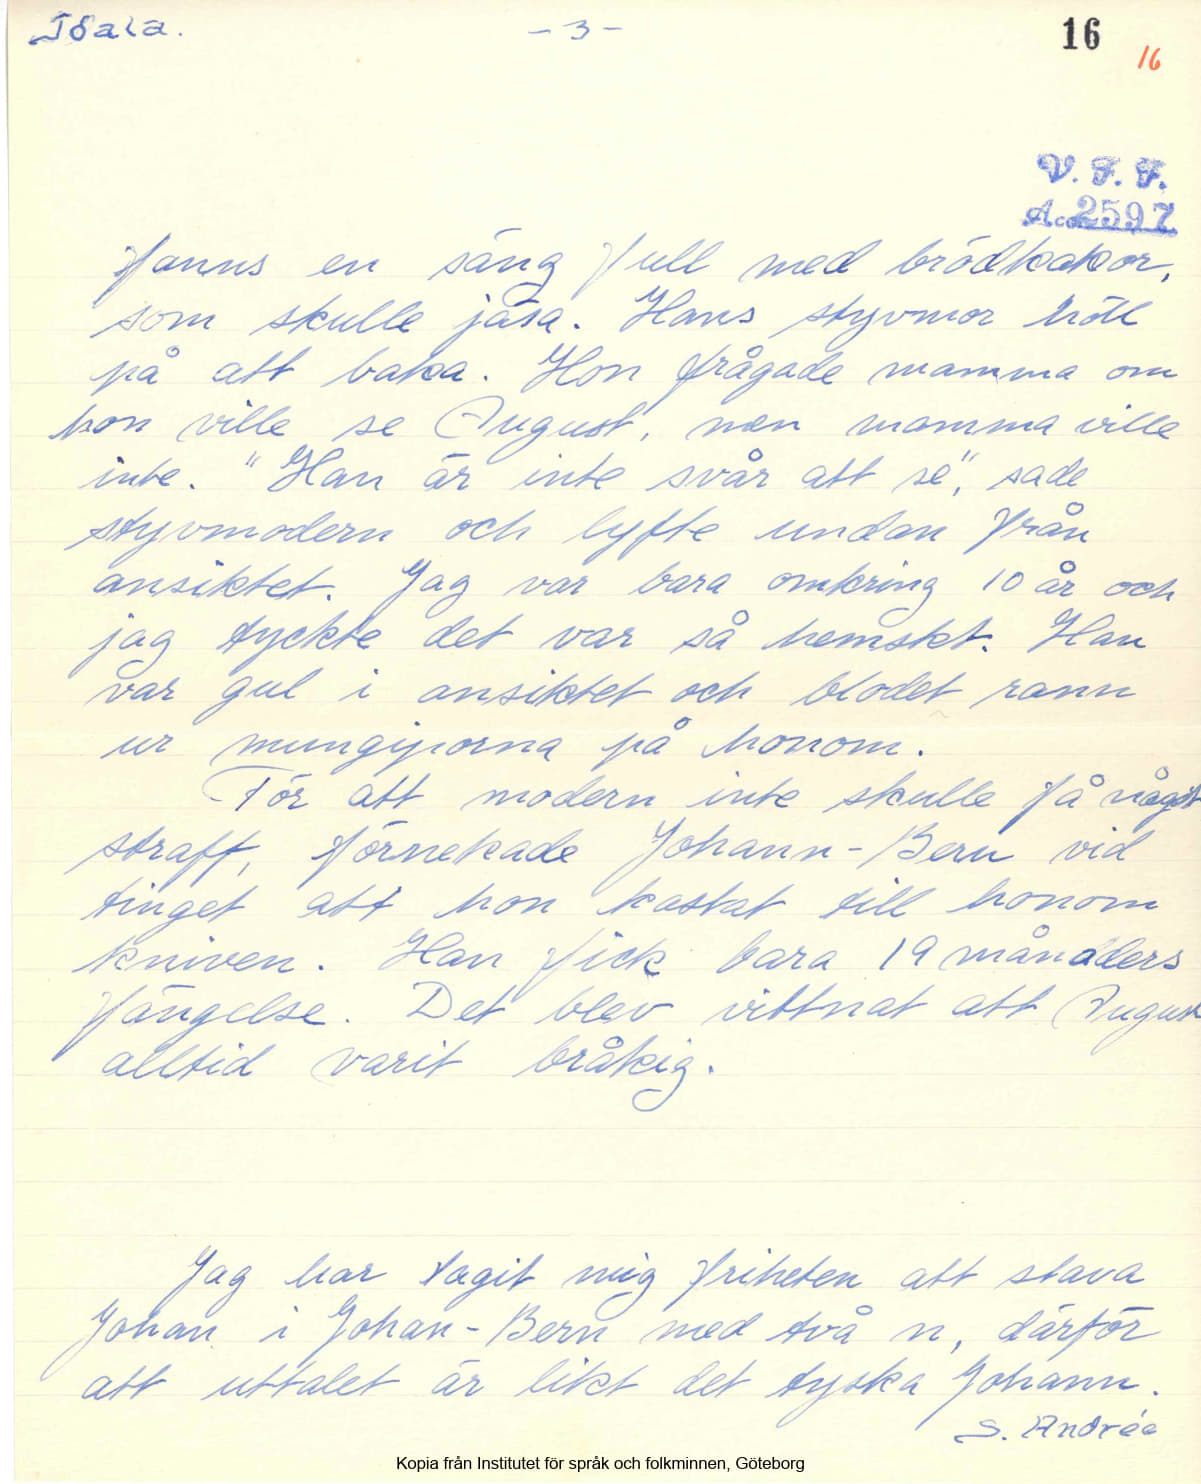 Tsala.
- 3 -
16
16
V. F. F.
Acc. 2597
fanns en säng full med brödkakor,
som skulle jäsa. Hans styvmor höll
på att baka. Hon frågade mamma om
hon ville se August, men mamma ville
inte. "Han är inte svår att se", sade
styvmodern och lyfte undan från
ansiktet. Jag var bara omkring 10 år och
jag tyckte det var så hemskt. Han
var gul i ansiktet och blodet rann
ur mungiporna på honom.
För att modern inte skulle få något
straff, förnekade Johann-Bern vid
tinget att hon kastat till honom
kniven. Han fick bara 19 månaders
fängelse. Det blev vittnat att August
alltid varit bråkig.
Jag har tagit mig friheten att stava
Johan i Johan-Bern med två n, därför
att uttalet är likt det tyska Johann.
S. Andrée
Kopia från Institutet för språk och folkminnen, Göteborg